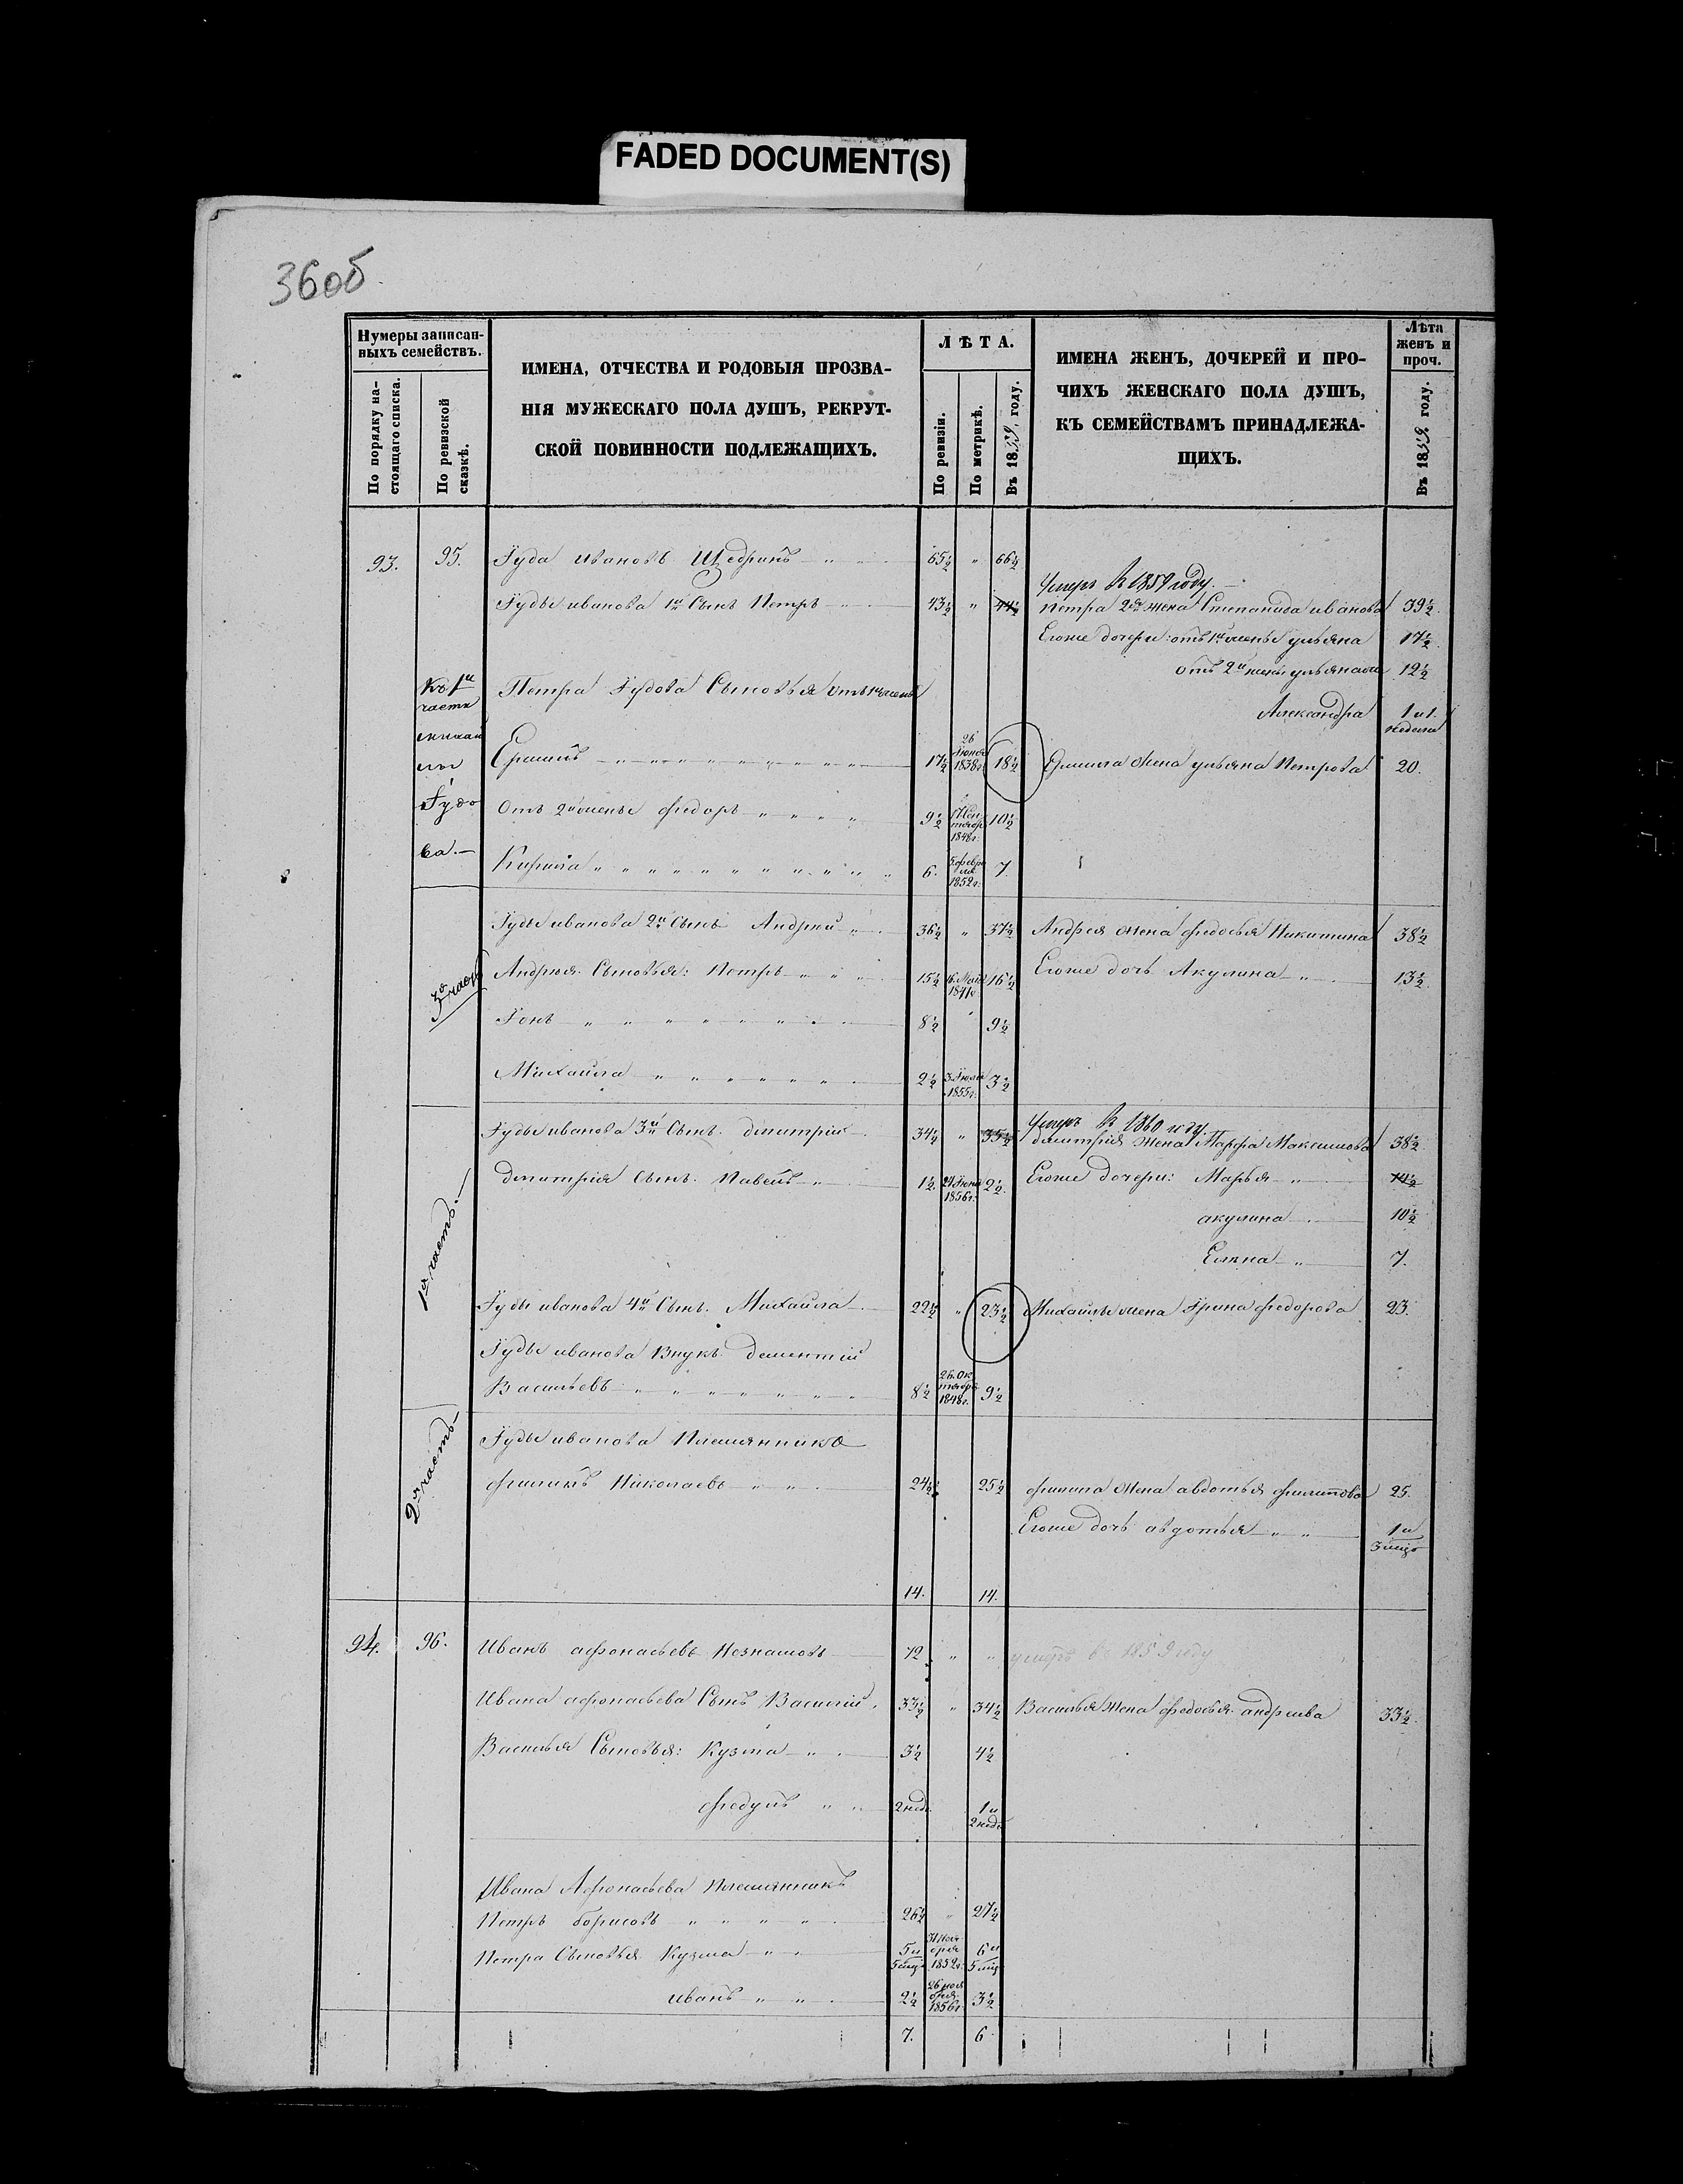 FADED DOCUMENT(S)
36об
Нумеры записан-
ныхъ семействъ.
По порядку на-
стоящаго списка.
По ревизской
сказкѣ.
ИМЕНА, ОТЧЕСТВА И РОДОВЫЯ ПРОЗВА-
НІЯ МУЖЕСКАГО ПОЛА ДУШЪ, РЕКРУТ-
СКОЙ ПОВИННОСТИ ПОДЛЕЖАЩИХЪ.
ЛѢТА.
По ревизіи.
По метрикѣ.
Въ 1859, году.
ИМЕНА ЖЕНЪ, ДОЧЕРЕЙ И ПРО-
ЧИХЪ ЖЕНСКАГО ПОЛА ДУШЪ,
КЪ СЕМЕЙСТВАМЪ ПРИНАДЛЕЖА-
ЩИХЪ.
Лѣта
женъ и
проч.
Въ 1859, году.
93. 95. Іуда ивановъ Щедринъ 65½ " 66½
Умеръ въ 1859 году.
Іуды иванова 1й Сынъ Петръ 43½ " 44½ Петра 2я жена Степанида иванова 39½
Егоже дочери: отъ 1й жены ульяна 17½
отъ 2й жены ульяна 12½
Къ 1й
части
Петра Іудова Сыновья отъ 1й жены
Александра 1 и 1.
недели
Ермилъ 17½ 26 Іюня 1838г. 18½ Ермила жена ульяна Петрова 20.
Іудо
ва.
отъ 2й жены федоръ 9½ 1848г. 10½
Кирила 6. февраля 1852г. 7.
Іуды иванова 2й Сынъ Андрей 36½ " 37½ Андрея жена федосья Никитина 38½
3я часть
Андрея Сыновья: Петръ 15½ 16 Мая 1841г 16½ Егоже дочь Акулина 13½
Іонъ 8½ 9½
Михайла 2½ 3 Іюля 1855г. 3½
Умеръ въ 1860 году
Іуды иванова 3й Сынъ дмитрій 34½ " 35½ дмитрія жена Марфа Максимова 38½
дмитрія Сынъ Павелъ 1½. 24 Іюня 1856г. 2½. Егоже дочери: Марья 14½
акулина 10½
Елена 7.
1я часть.
Іуды иванова 4й Сынъ Михайла 22½ " 23½ Михайлы жена Ірина федорова 23.
Іуды иванова Внукъ дементій
Васильевъ 8½ 26. Октября 1848г. 9½
2я часть
Іуды иванова Племянникъ
филипъ Николаевъ 24½ 25½ филипа жена авдотья филиппова 25.
Егоже дочь авдотья 1 и
3 мца
14. 14.
94. 96. Иванъ афонасьевъ Незнамовъ 72 " " умеръ въ 1859 году
Ивана афонасьева Сынъ Василій 33½ " 34½ Василья жена федосья андреева 33½
Василья Сыновья: Кузма 3½ 4½
федулъ 2 нед. 1 и
2 нед.
Ивана Афонасьева Племянникъ
Петръ борисовъ 26½ " 27½
Петра Сыновья Кузма 5 и 5 мцв 1852г. 6 и 5 мцв
иванъ 2½ 26 ноября 1856г. 3½
7. 6